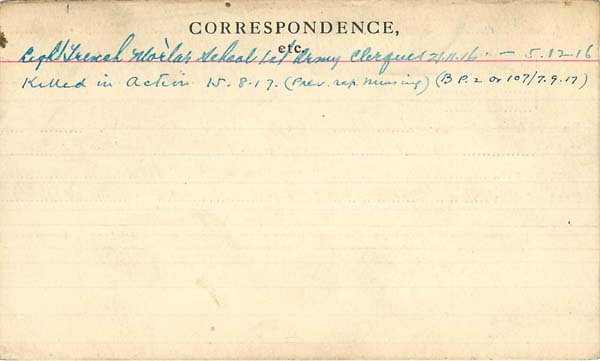 CORRESPONDENCE,
etc.
Light Trench Mortar School 1st Army Clerques 21.11.16 - 5.12.16
Killed in Action 15.8.17. (Prev. rep. Missing) (B P.2 Or 107/7.9.17)